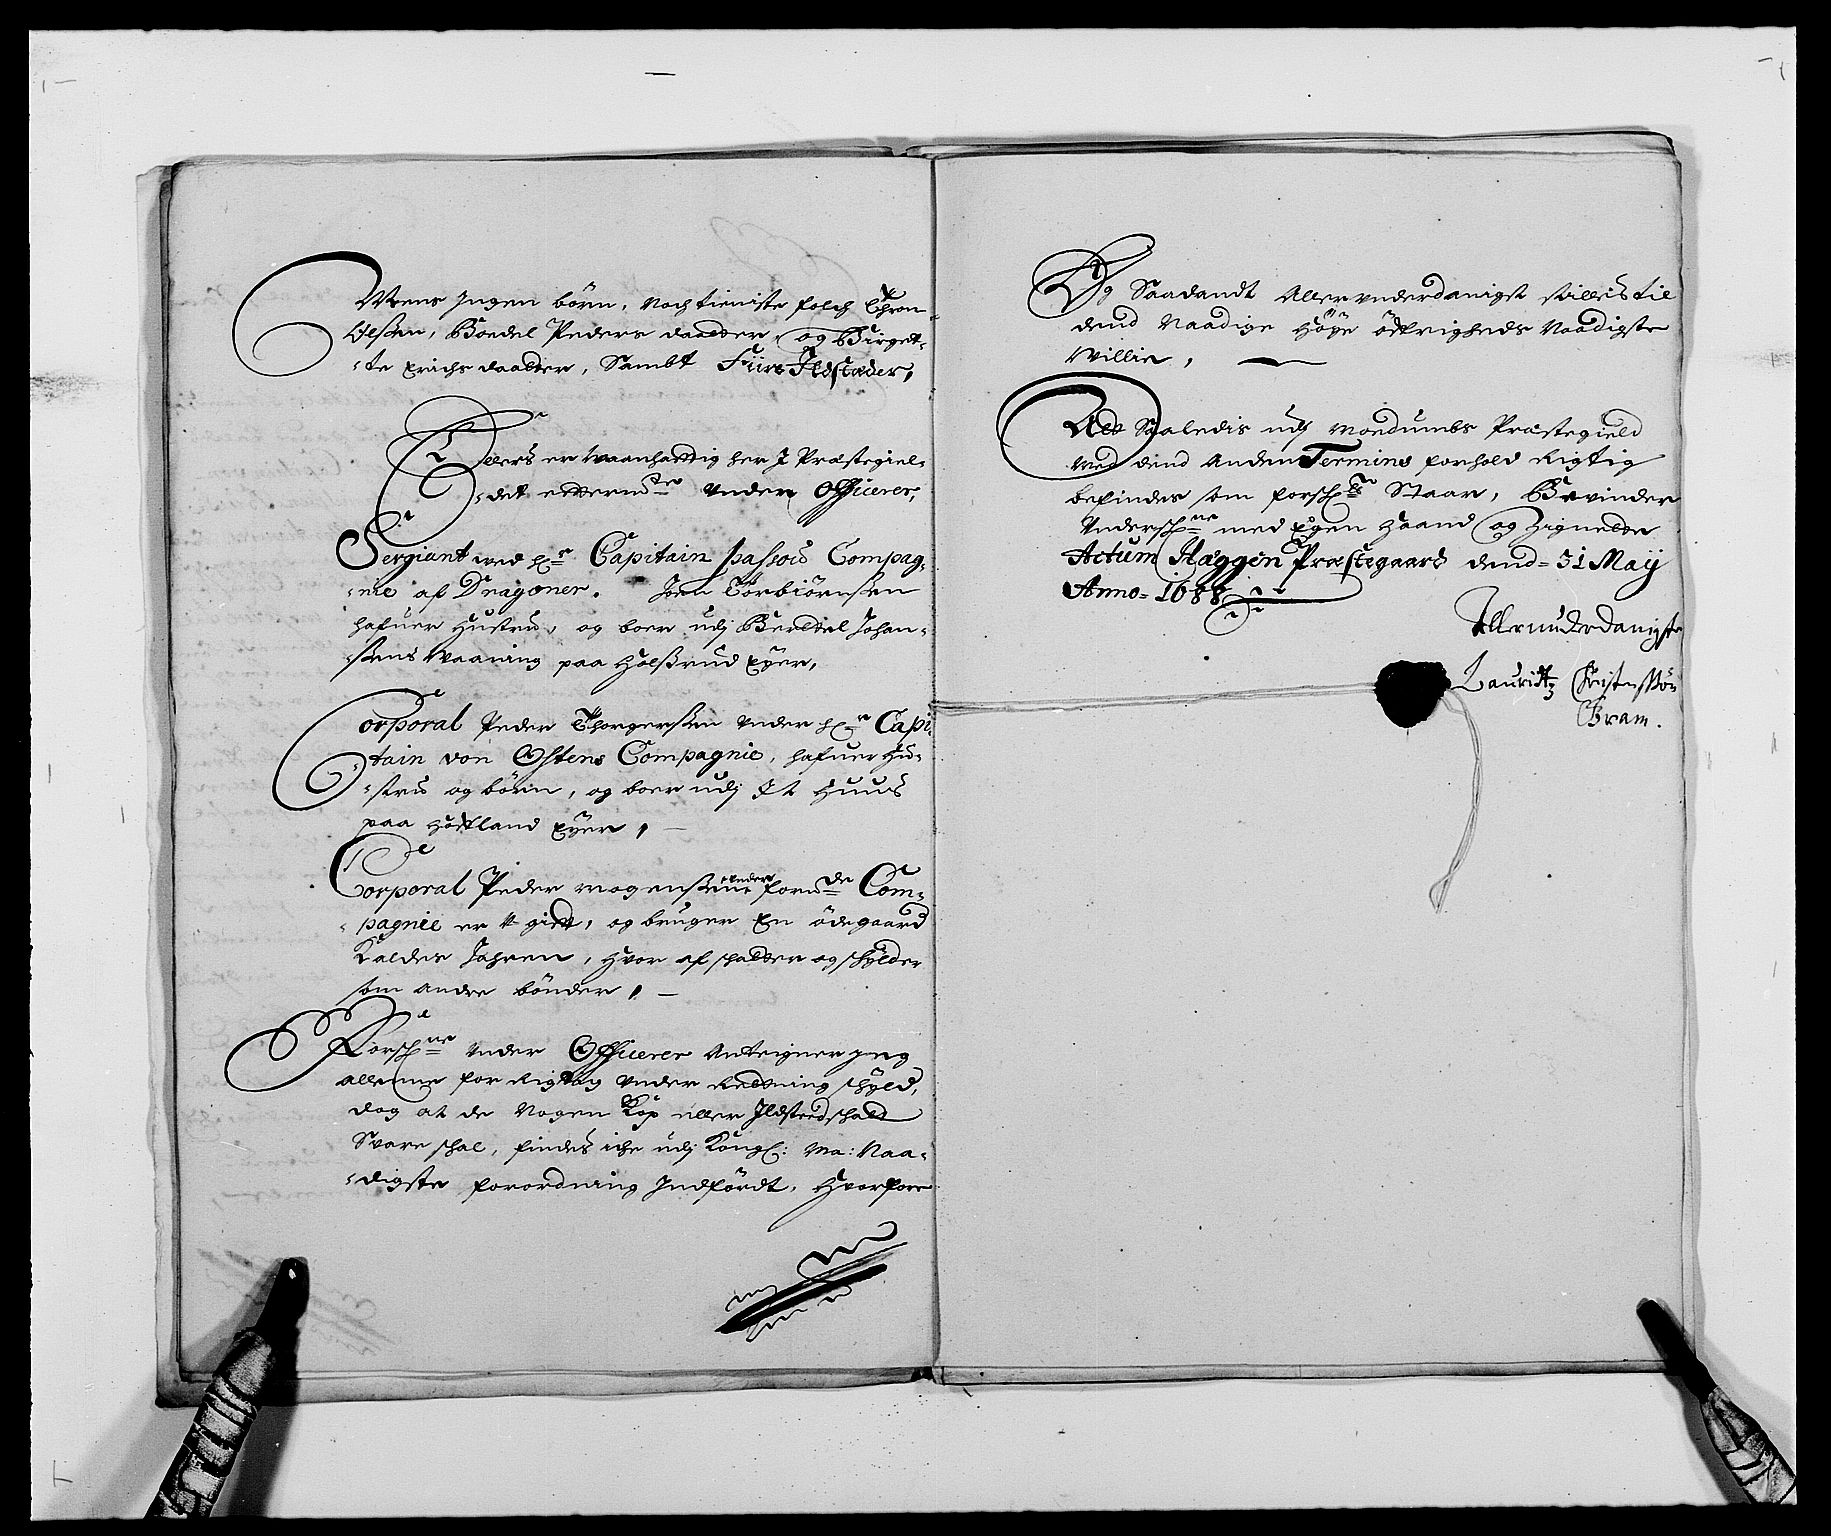 Mens Ingen börn, noch tieniste folch Thron-
Olssen, Boedel Peders daatter, og Birget-
te Erichs daatter, Sambt Fiire Ildstæder,
Ellers er Waanhafftig her J Præstegiel-
det effternde Under Officerer,
Sergiant ved hr Capitain passous Compag-
nie af Dragoner. Joen Torbiörnssen
hafuer Hustru, og boer udj Berttel Johan-
ssens Waaning paa Holssrud Eyer,
Corporal Peder Thorgerssen Under hr Capi
tain von Ostens Compagnie, hafuer Hu-
stru og börn, og boer udj Et Huus
paa Hofland Eyer, -
Corporal Peder Mogenssen under fornde Com-
pagnie er gifft, og bruger En ödegaard
Kaldes Jahren, Hvor af schatter og schylder
som andre bönder, -
Forschne Under Officerer Anteigner jeg
allene for Rigtig Under Rettning schyld,
dog at de Nogen Kop eller Ildstedschatt
Svare schal, findes iche udj Kongl: Ma: Naa-
digste forordning Indfördt, Hvorfore
Og Saadandt Allerunderdanigst stillis til
dend Naadige Höye Öfrigheds Naadigste
Villie,
Att Saaledis udj Modumbs Præstegield
med dend Anden Termins forhold Rigtig
befindes som forschte Staar, Bevinder
Underschne med Egen Haand og Zignette
Actum Hæggen Præstegaard dend 31 Maij
Anno 1688
Allerunderdanigste
Lauridtz Christenssøn
Gram.